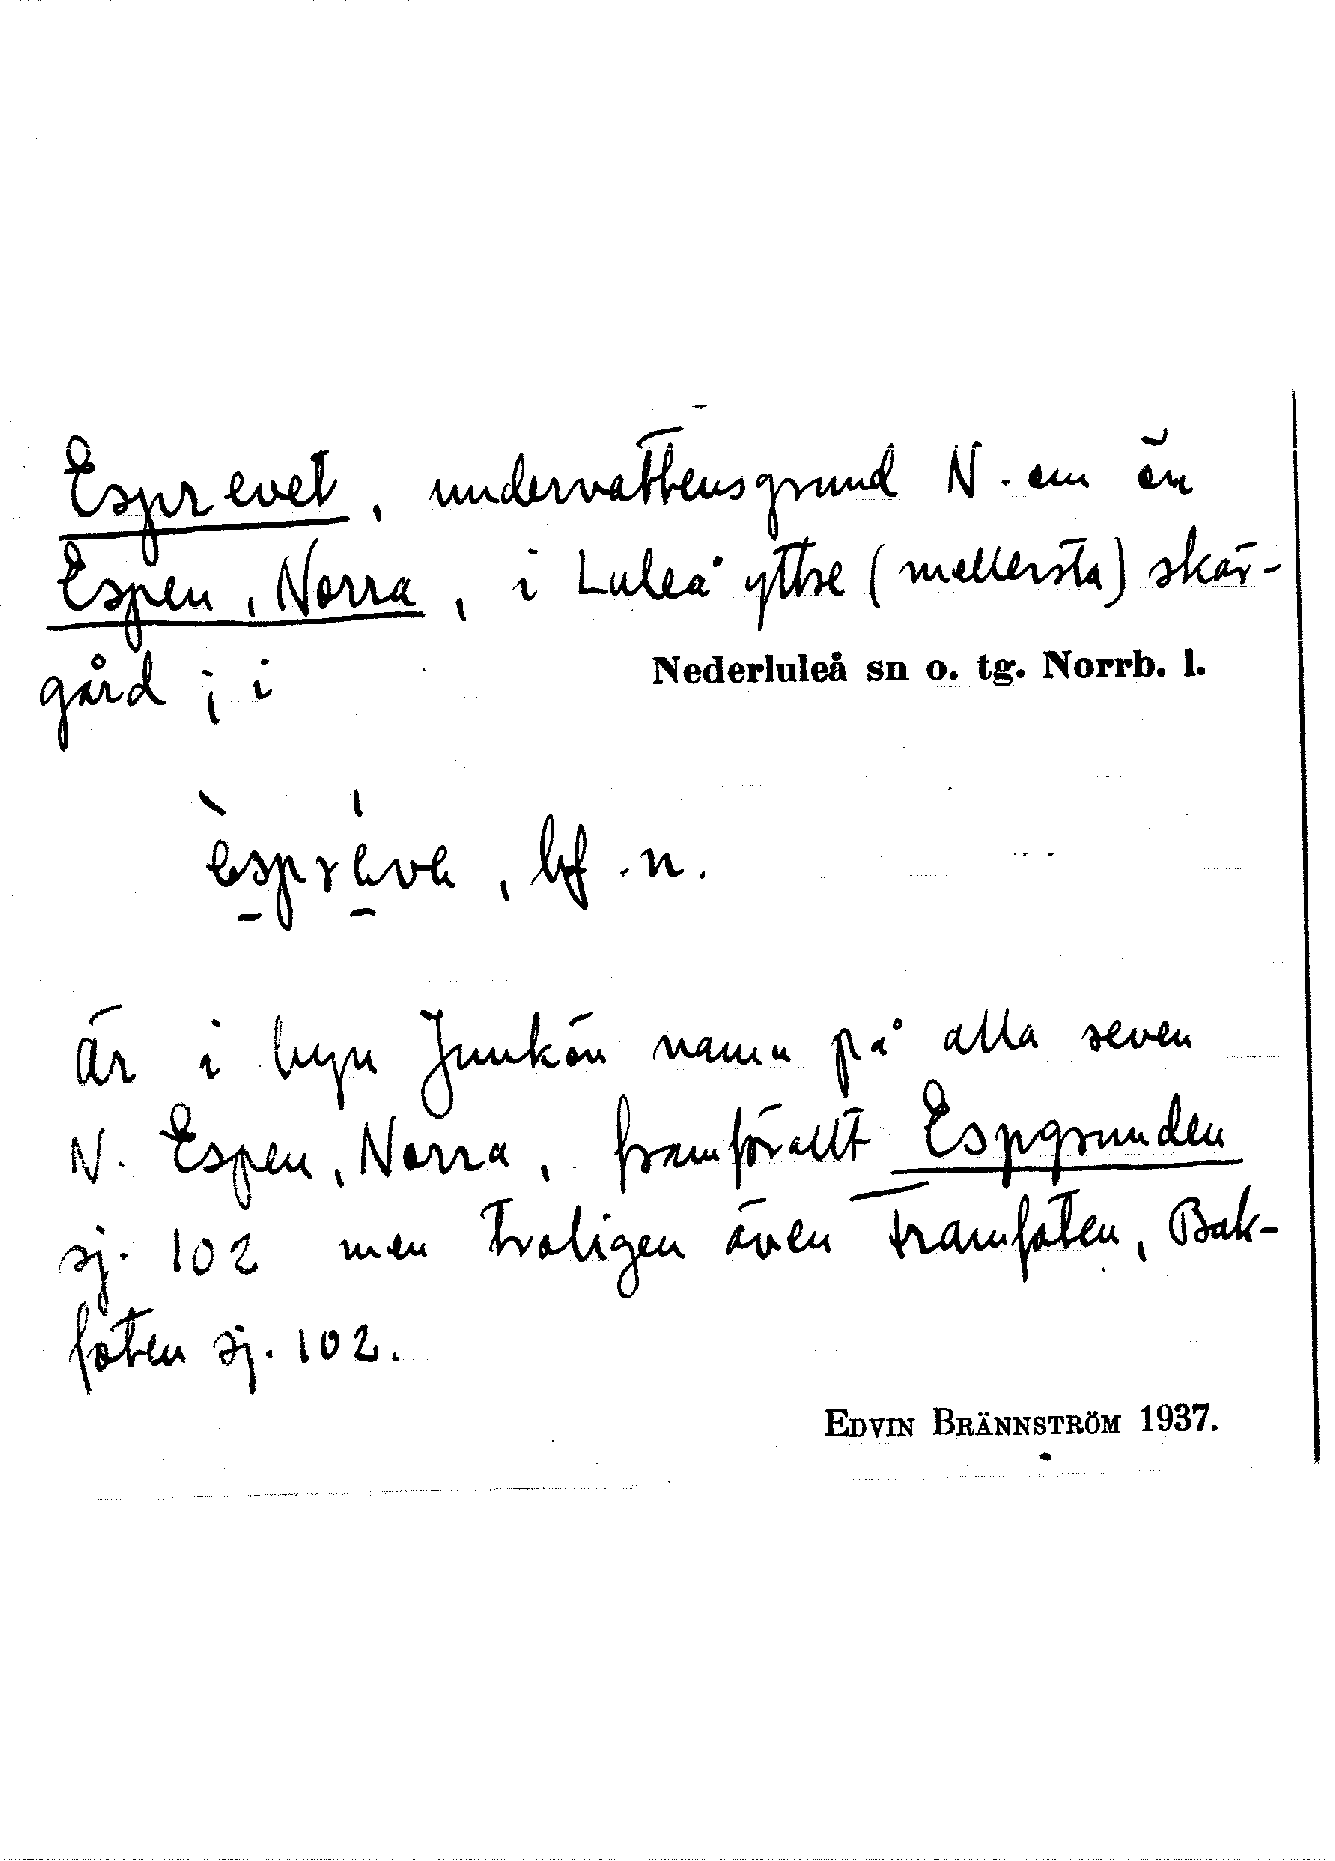 Esprevet, undervattensgrund N. om ön
Espen, Norra, i Luleå yttre (mellersta) skär-
gård ; i Nederluleå sn o. tg. Norrb. l.
èspréve, bf. n.
Är i byn Junkön namn på alla reven
N. Espen, Norra, framförallt Espgrunden
sj. 102 men troligen även Framfoten, Bak-
foten sj. 102.
EDVIN BRÄNNSTRÖM 1937.